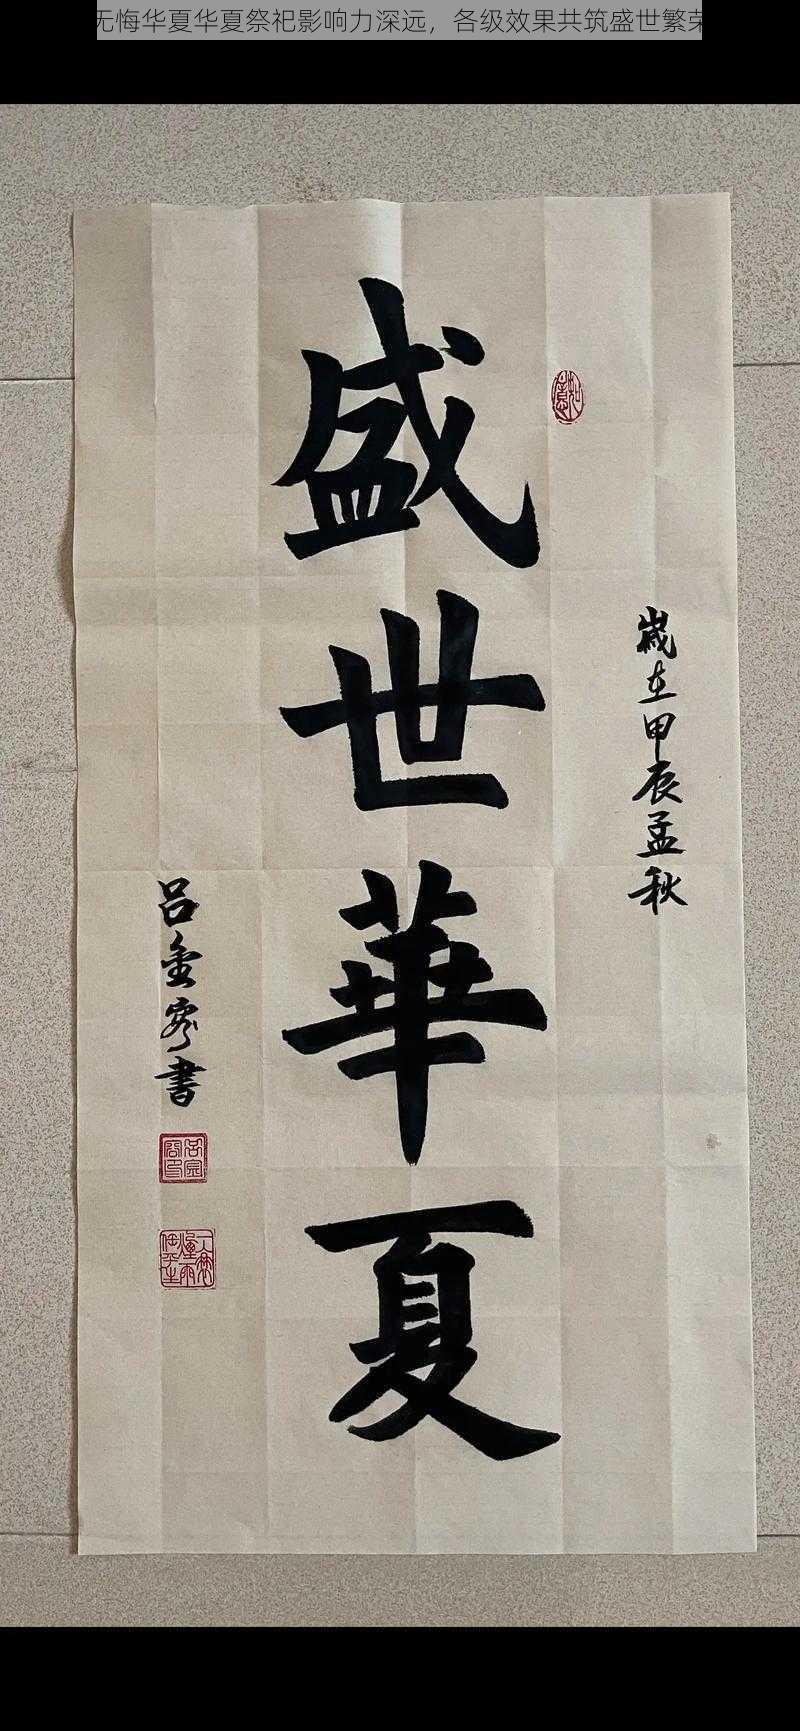 无悔华夏华夏祭祀影响力深远，各级效果共筑盛世繁荣
歲在甲辰孟秋
盛世華夏
吕金容書
如意